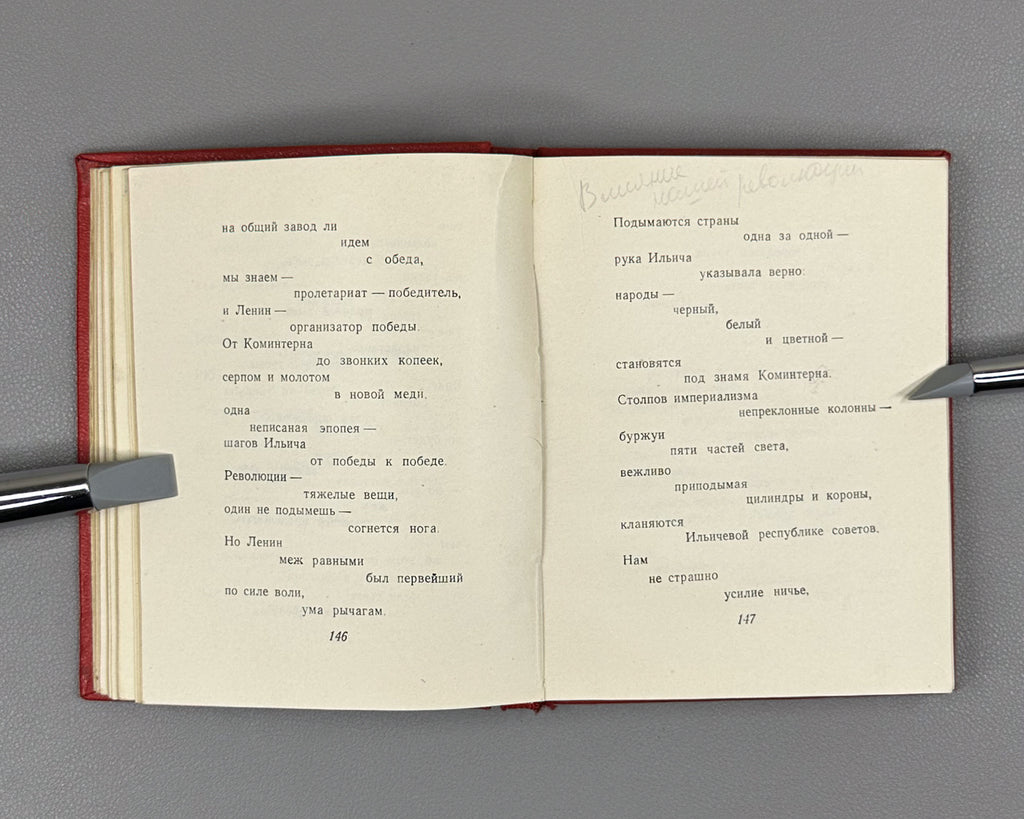 на общий завод ли
идем
с обеда,
мы знаем —
пролетариат — победитель,
и Ленин —
организатор победы.
От Коминтерна
до звонких копеек,
серпом и молотом
в новой меди,
одна
неписаная эпопея —
шагов Ильича
от победы к победе.
Революции —
тяжелые вещи,
один не подымешь —
согнется нога.
Но Ленин
меж равными
был первейший
по силе воли,
ума рычагам.
146
Влияние
нашей революции
Подымаются страны
одна за одной —
рука Ильича
указывала верно:
народы —
черный,
белый
и цветной —
становятся
под знамя Коминтерна.
Столпов империализма
непреклонные колонны —
буржуи
пяти частей света,
вежливо
приподымая
цилиндры и короны,
кланяются
Ильичевой республике советов.
Нам
не страшно
усилие ничье,
147